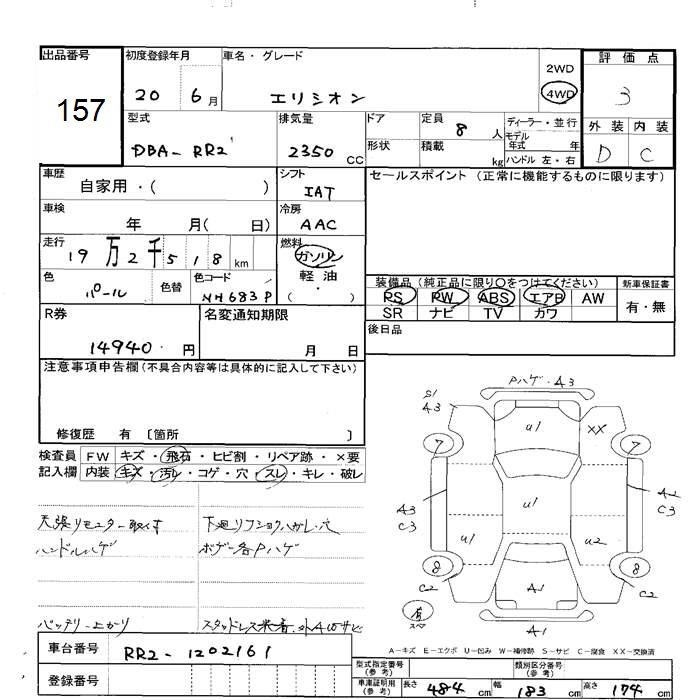 出品番号
157
初度登録年月
20 6月
車名・グレード
エリシオン
2WD
4WD
評価点
3
型式
DBA-RR2
排気量
2350 CC
ドア
形状
定員
8 人
積載
kg
ディーラー・並行
モデル年式 年
ハンドル 左・右
外装 内装
D C
車歴
自家用・( )
シフト
IAT
セールスポイント (正常に機能するものに限ります)
車検
年 月( 日)
冷房
AAC
走行
19万2千518 km
燃料
ガソリン
軽油
・
( )
色
パール
色替
色コード
NH683P
装備品 (純正品に限り○をつけてください)
PS PW ABS エアB AW
SR ナビ TV カワ
新車保証書
有・無
R券
14940 円
名変通知期限
月 日
後日品
注意事項申告欄(不具合内容等は具体的に記入して下さい)
修復歴 有 〔箇所 〕
検査員記入欄
FW キズ・飛石・ヒビ割・リペア跡・×要
内装 キズ・汚レ・コゲ・穴・スレ・キレ・破レ
天張りモニター取外
ハンドルハゲ
バッテリー上がり
下廻り
穴
ボデー各Pハゲ
スタッドレス装着
サビ
Pハゲ・A3
S1
A3
U1
XX
7
7
A3
C3
U1
A2
C3
U1
U2
8
8
C2
A1
C2
有
スペア
A1
A-キズ E-エクボ U-凹み W-補修跡 S-サビ C-腐食 XX-交換済
車台番号
RR2-1202161
登録番号
型式指定番号
(参考)
類別区分番号
(参考)
車庫証明用
(参考)
長さ 484 cm 幅 183 cm 高さ 174 cm